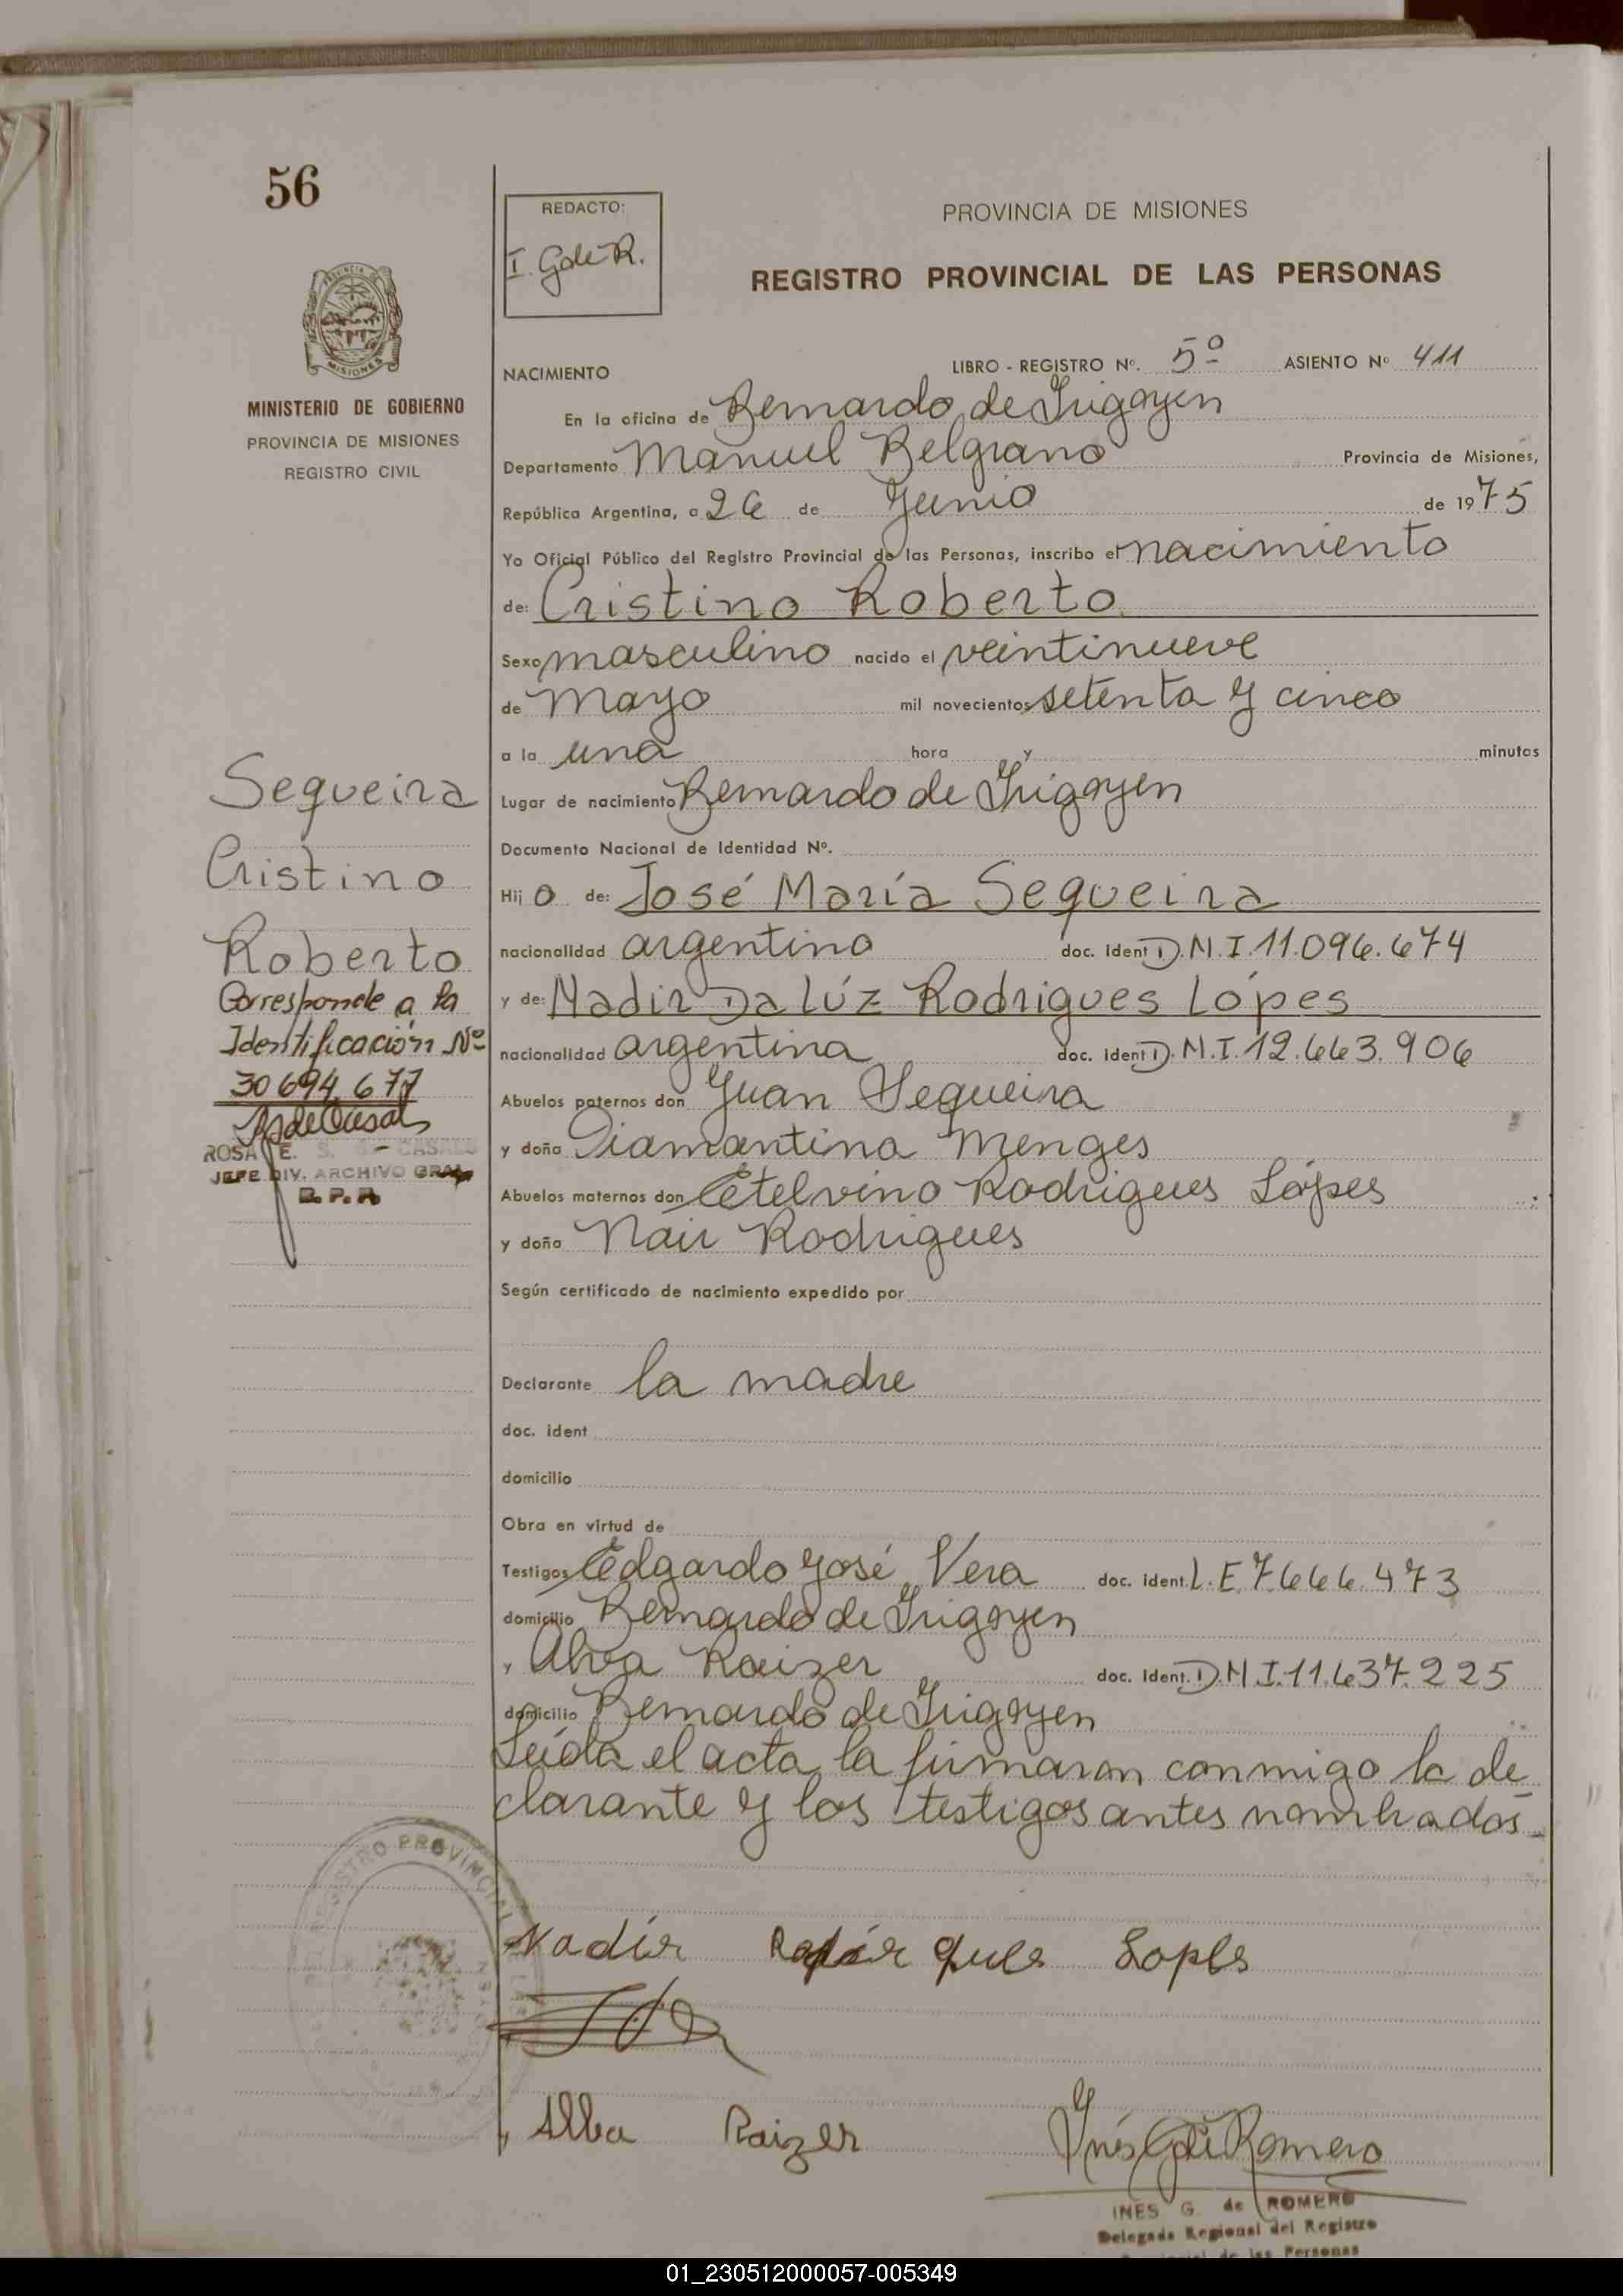 56
REDACTO:
I. G de R.
PROVINCIA DE MISIONES
REGISTRO PROVINCIAL DE LAS PERSONAS
MISIONES
MINISTERIO DE GOBIERNO
PROVINCIA DE MISIONES
REGISTRO CIVIL
NACIMIENTO LIBRO - REGISTRO Nº. 5º ASIENTO Nº 411
En la oficina de Bernardo de Irigoyen
Departamento Manuel Belgrano Provincia de Misiones,
República Argentina, a 26 de Junio de 1975
Yo Oficial Público del Registro Provincial de las Personas, inscribo el nacimiento
de: Cristino Roberto
Sexo masculino nacido el veintinueve
de Mayo mil novecientos setenta y cinco
a la una hora y minutos
Lugar de nacimiento Bernardo de Irigoyen
Documento Nacional de Identidad Nº.
Hij o de: José María Sequeira
nacionalidad argentino doc. ident D.N.I. 11.096.674
y de: Nadir Da lúz Rodrigues Lópes
nacionalidad argentina doc. ident D.N.I. 12.663.906
Abuelos paternos don Juan Sequeira
y doña Diamantina Menges
Abuelos maternos don Etelvino Rodrigues Lópes
y doña Nair Rodrigues
Según certificado de nacimiento expedido por
Declarante la madre
doc. ident
domicilio
Obra en virtud de
Testigos Edgardo José Vera doc. ident. L.E. 7.666.473
domicilio Bernardo de Irigoyen
y Alva Raizer doc. Ident. D.N.I. 11.637.225
domicilio Bernardo de Irigoyen
Leída el acta, la firmaron conmigo la de
clarante y los testigos antes nombrados
Sequeira
Cristino
Roberto
Corresponde a la
Identificación Nº
30694.677
ROSA E. S. CASALS
JEFE DIV. ARCHIVO GRAL
R.P.P.
REGISTRO PROVINCIAL
Nadir Rodrigues Lopes
Alba Raizer
Inés G de Romero
INES G. de ROMERO
Delegada Regional del Registro
de las Personas
01_230512000057-005349